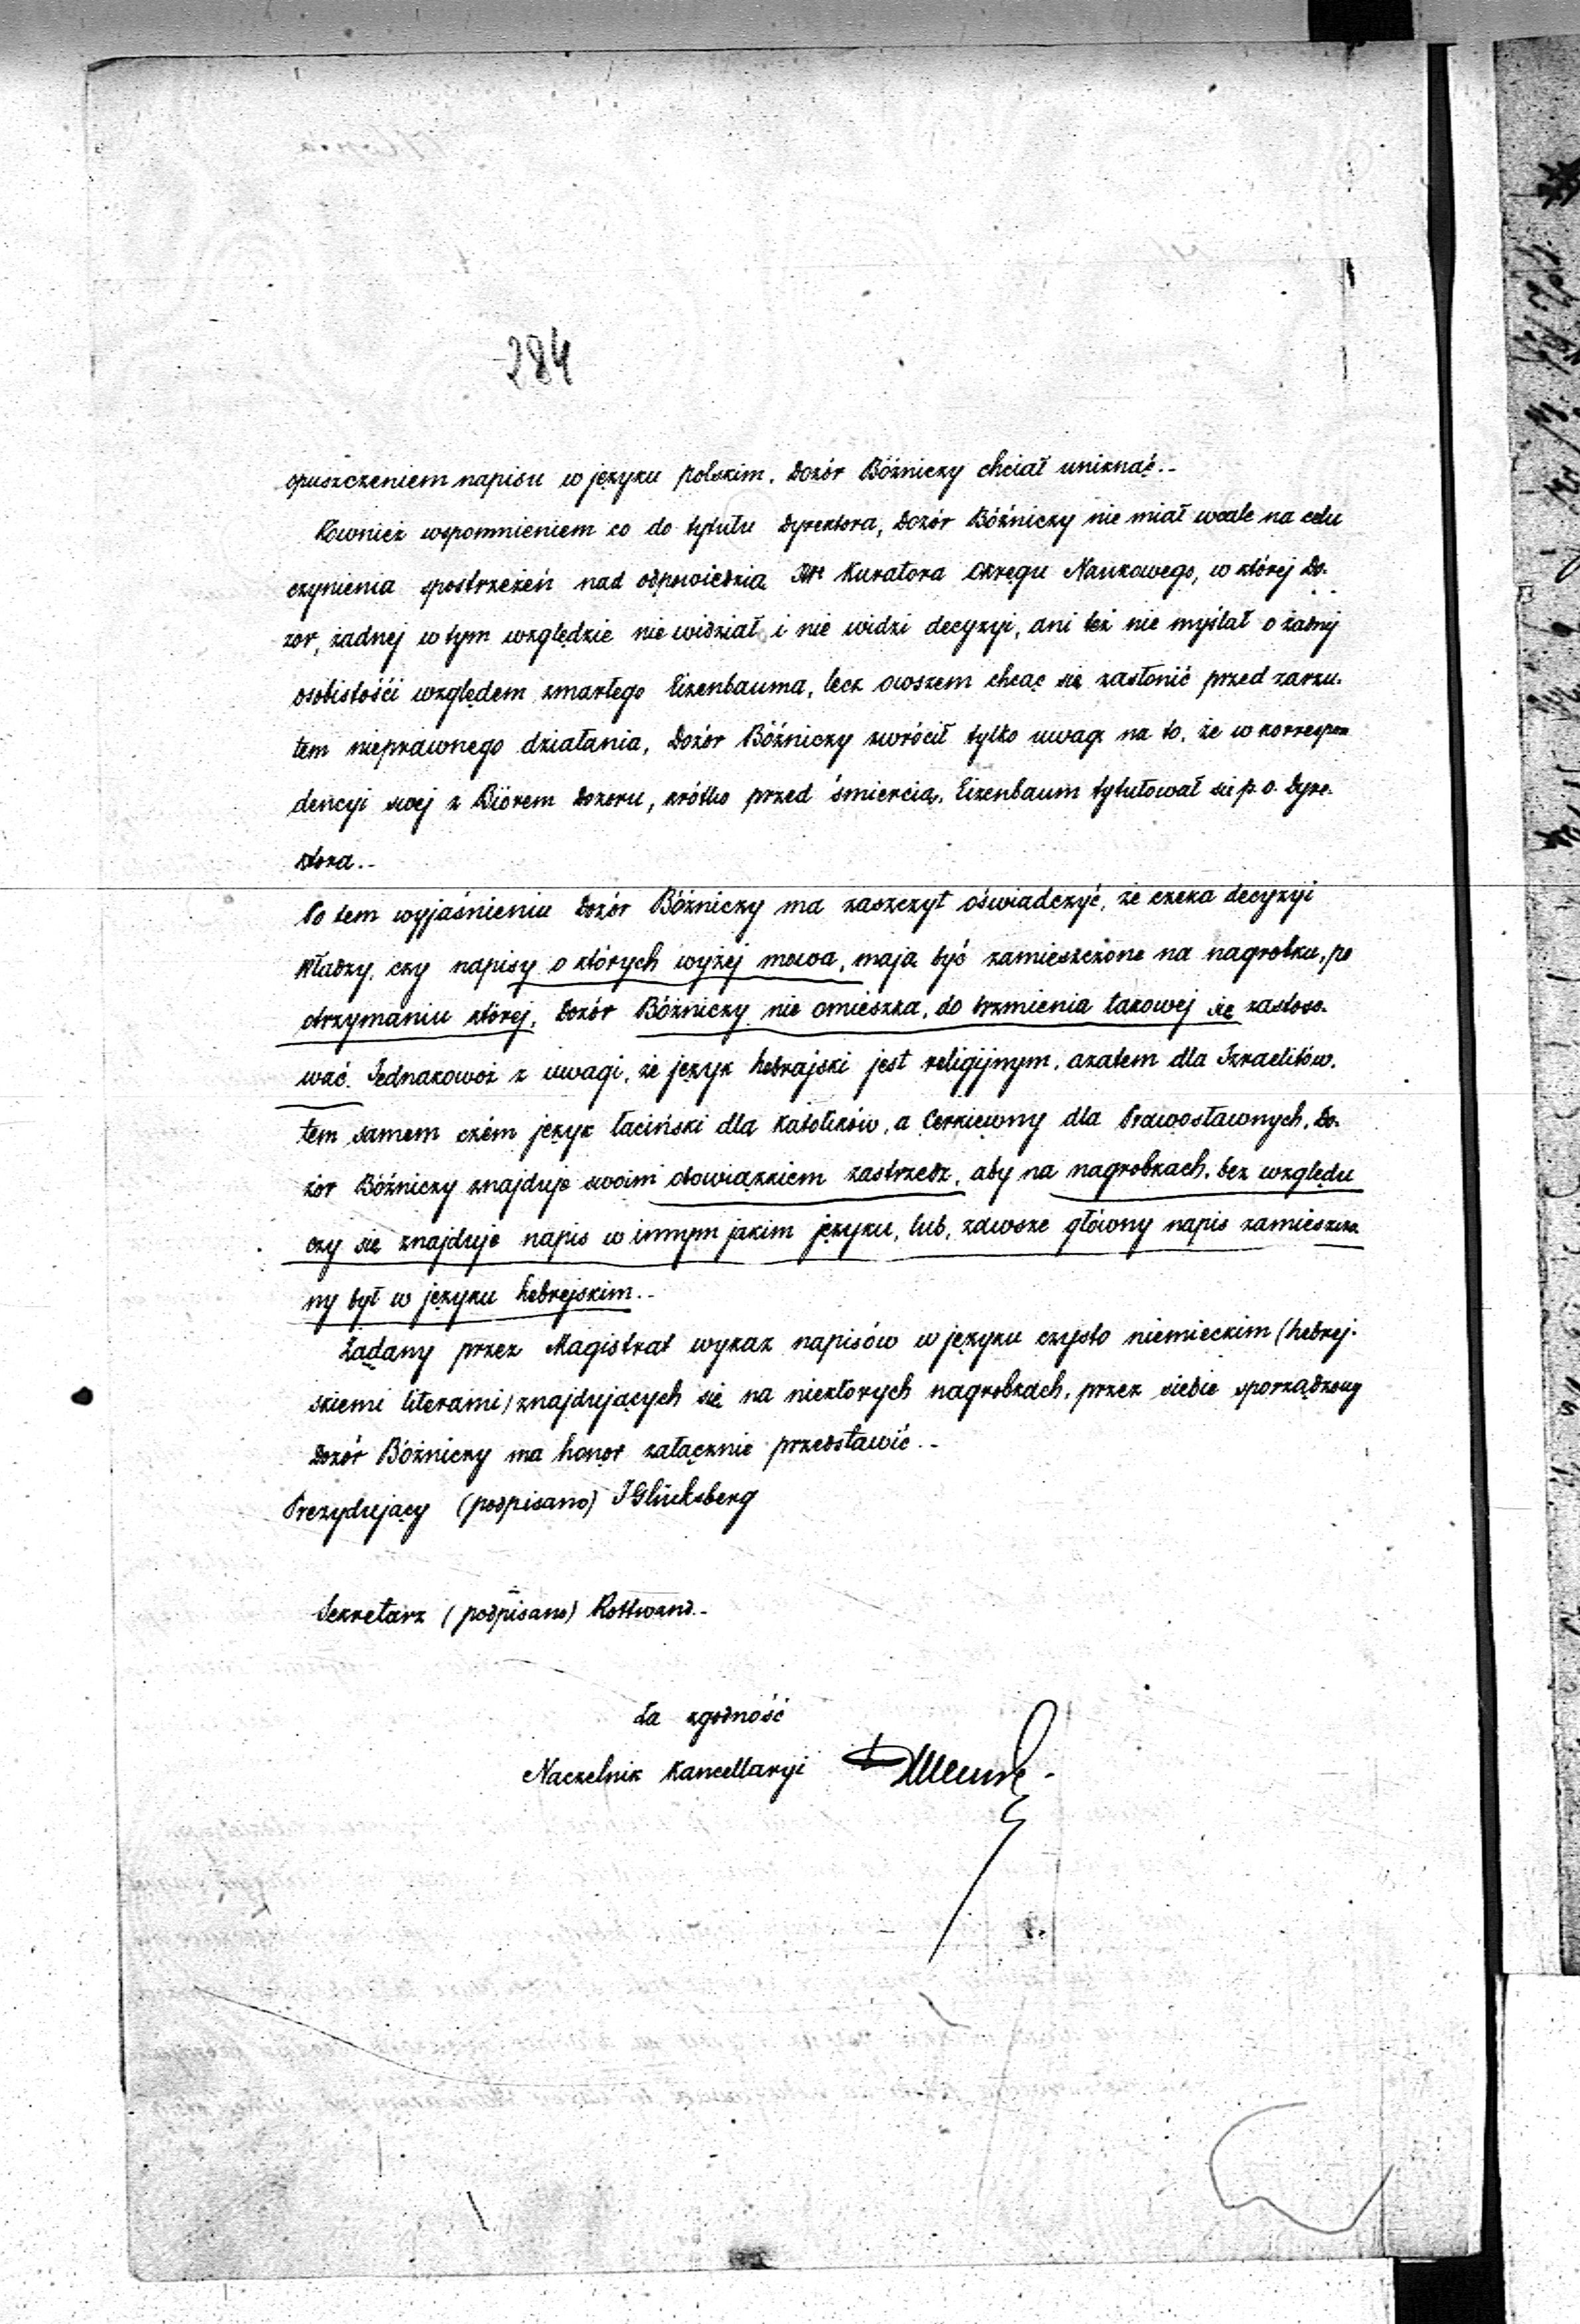 284
opuszczeniem napisu w języku polskim, Dozór Bóżniczy chciał uniknąć.-
Rownież wspomnieniem co do tytułu Dyrektora, Dozór Bóżniczy nie miał wcale na celu
czynienia spostrzeżeń nad odpowiedzią Kuratora Okręgu Naukowego, w której Do-
zor, żadnej w tym względzie nie widział i nie widzi decyzyi, ani też nie myślał o żadnij
osobistośći względem zmarłego Eizenbauma, lecz owszem chcąc się zasłonić przed zarzu-
tem nieprawnego działania, Dozór Bóżniczy zwrócił tylko uwagę na to, że w korrespon
dencyi swej z Biórem Dozoru, krótko przed śmiercią, Eizenbaum tytułował się p.o. Dyre-
ktora.-
Po tem wyjaśnieniu Dozór Bóżniczy ma zaszczyt oświadczyć, że czeka decyzyi
Władzy, czy napisy o których wyżej mowa, mają być zamieszczone na nagrobku, po
otrzymaniu której, Dozór Bóżniczy nie omieszka, do brzmienia takowej się zastoso-
wać. Jednakowoż z uwagi, że język hebrajski jest religijnym, azatem dla Izraelitów,
tem samem czém język łaciński dla Katolików, a Cerkiewny dla Prawosławnych, Do-
zór Bóżniczy znajduje swoim obowiązkiem zastrzedz, aby na nagrobkach, bez względu
czy się znajduje napis w innym jakim języku, lub, zawsze główny napis zamieszcza
ny był w języku hebrejskim.-
Żądany przez Magistrat wykaz napisów w języku czysto niemieckim (hebrej-
skiemi literami) znajdujących się na niektorych nagrobkach, przez siebie sporządzony
Dozór Bóżniczy ma honor załącznie przedstawić.-
Prezydujący (podpisano) J Glücksberg
Sekretarz (podpisano) Rottwand.-
Za zgodność
Naczelnik Kancellaryi